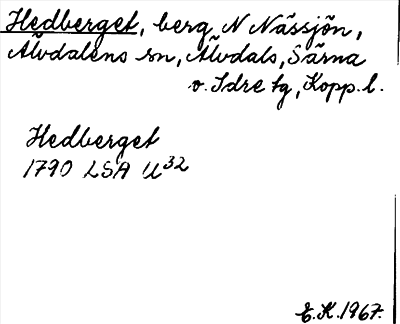 Hedberget, berg N Nässjön,
Älvdalens sn, Älvdals, Särna
o. Idre tg, Kopp. l.
Hedberget
1790 LSA U32
E.K. 1967.